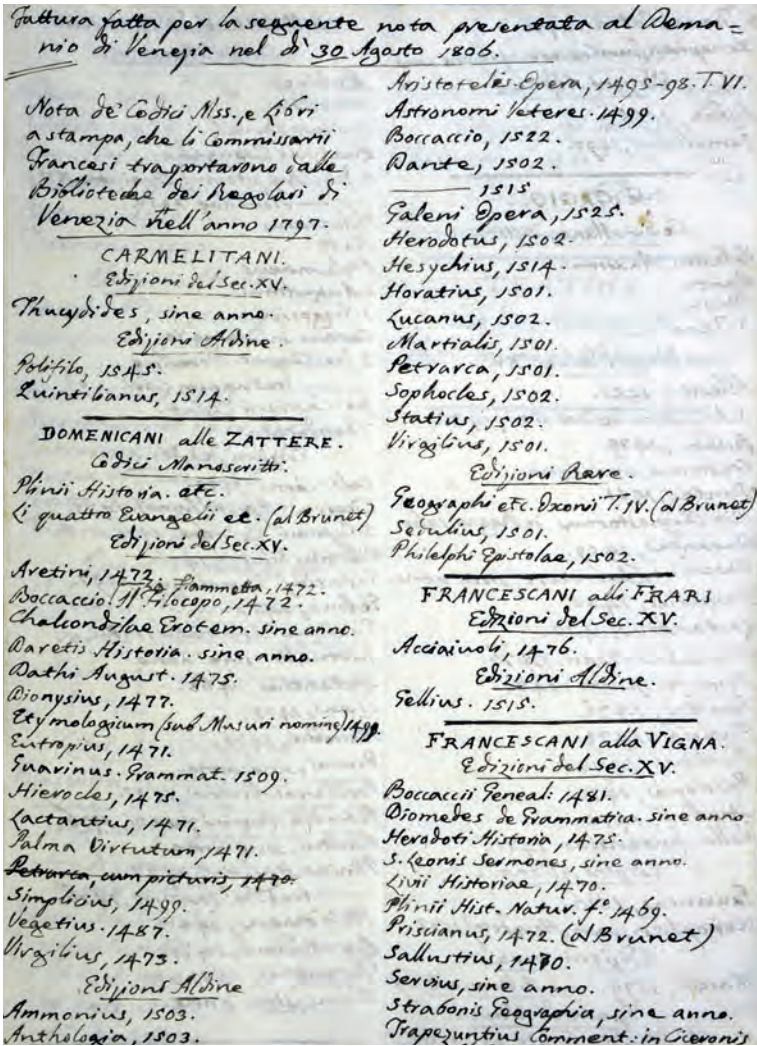 Fattura fatta per la seguente nota presentata al Dema=
nio di Venezia nel dì 30 Agosto 1806.
Nota de' Codici Mss., e Libri
a stampa, che li Commissarii
Francesi trasportarono dalle
Biblioteche dei Regolari di
Venezia nell'anno 1797.
CARMELITANI.
Edizioni del Sec. XV.
Thucydides, sine anno.
Edizioni Aldine.
Polifilo, 1545.
Quintilianus, 1514.
DOMENICANI alle ZATTERE.
Codici Manoscritti.
Plinii Historia. etc.
Li quattro Evangelii ec. (al Brunet)
Edizioni del Sec. XV.
Aretini, 1472.
La Fiammetta, 1472.
Boccaccio. Il Filocopo, 1472.
Chalcondilae Erotem. sine anno.
Daretis Historia. sine anno.
Dathi August. 1475.
Dionysius, 1477.
Etymologicum (sub Musuri nomine) 1499.
Eutropius, 1471.
Guarinus. Grammat. 1509.
Hierocles, 1475.
Lactantius, 1471.
Palma Virtutum, 1471.
Petrarca, cum picturis, 1470.
Simplicius, 1499.
Vegetius. 1487.
Virgilius, 1473.
Edizioni Aldine
Ammonius, 1503.
Anthologia, 1503.
Aristotelis Opera, 1495-98. T. VI.
Astronomi Veteres. 1499.
Boccaccio, 1522.
Dante, 1502.
—— 1515
Galeni Opera, 1525.
Herodotus, 1502.
Hesychius, 1514.
Horatius, 1501.
Lucanus, 1502.
Martialis, 1501.
Petrarca, 1501.
Sophocles, 1502.
Statius, 1502.
Virgilius, 1501.
Edizioni Rare.
Geographi etc. Oxonii T. IV. (al Brunet)
Sedulius, 1501.
Philelphi Epistolae, 1502.
FRANCESCANI alli FRARI
Edizioni del Sec. XV.
Acciaiuoli, 1476.
Edizioni Aldine.
Gellius. 1515.
FRANCESCANI alla VIGNA.
Edizioni del Sec. XV.
Boccaccii Geneal: 1481.
Diomedes de Grammatica. sine anno
Herodoti Historia, 1475.
S. Leonis Sermones, sine anno.
Livii Historiae, 1470.
Plinii Hist. Natur. f.º 1469.
Priscianus, 1472. (al Brunet)
Sallustius, 1470.
Servius, sine anno.
Strabonis Geographia, sine anno.
Trapezuntius Comment: in Ciceronis